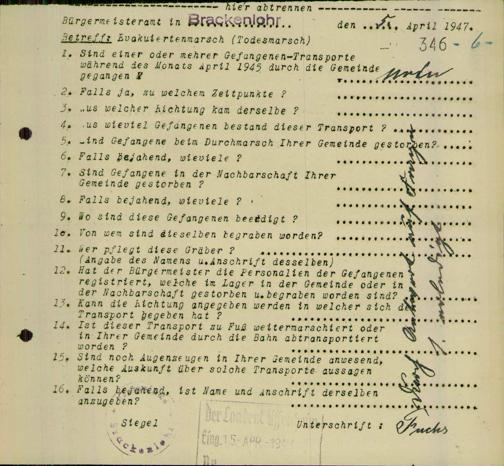 hier abtrennen
Bürgermeisteramt in Brackenlohr. den 5. April 1947.
Betreff: Evakuiertenmarsch (Todesmarsch) 346 - 6 -
1. Sind einer oder mehrer Gefangenen-Transporte
während des Monats April 1945 durch die Gemeinde
gegangen ? nein
2. Falls ja, zu welchem Zeitpunkte ?
3. us welcher Richtung kam derselbe ?
4. us wieviel Gefangenen bestand dieser Transport ?
5. ind Gefangene beim Durchmarsch Ihrer Gemeinde gestorben?
6. Falls bejahend, wieviele ?
7. Sind Gefangene in der Nachbarschaft Ihrer
Gemeinde gestorben ?
8. Falls bejahend, wieviele ?
9. Wo sind diese Gefangenen beerdigt ?
10. Von wem sind dieselben begraben worden?
11. Wer pflegt diese Gräber ?
(Angabe des Namens u.Anschrift desselben)
12. Hat der Bürgermeister die Personalien der Gefangenen
registriert, welche im Lager in der Gemeinde oder in
der Nachbarschaft gestorben u.begraben worden sind?
13. Kann die Richtung angegeben werden in welcher sich d
Transport begeben hat ?
14. Ist dieser Transport zu Fuß weitermarschiert oder
in Ihrer Gemeinde durch die Bahn abtransportiert
worden ?
15. Sind noch Augenzeugen in Ihrer Gemeinde anwesend,
welche Auskunft über solche Transporte aussagen
können?
16. Falls bejahend, ist Name und Anschrift derselben
anzugeben?
Durch Antwort auf Fragen
1 erledigt
Siegel Unterschrift : Fuchs
Der Landrat
Eing. 15. APR. 194
Nr.